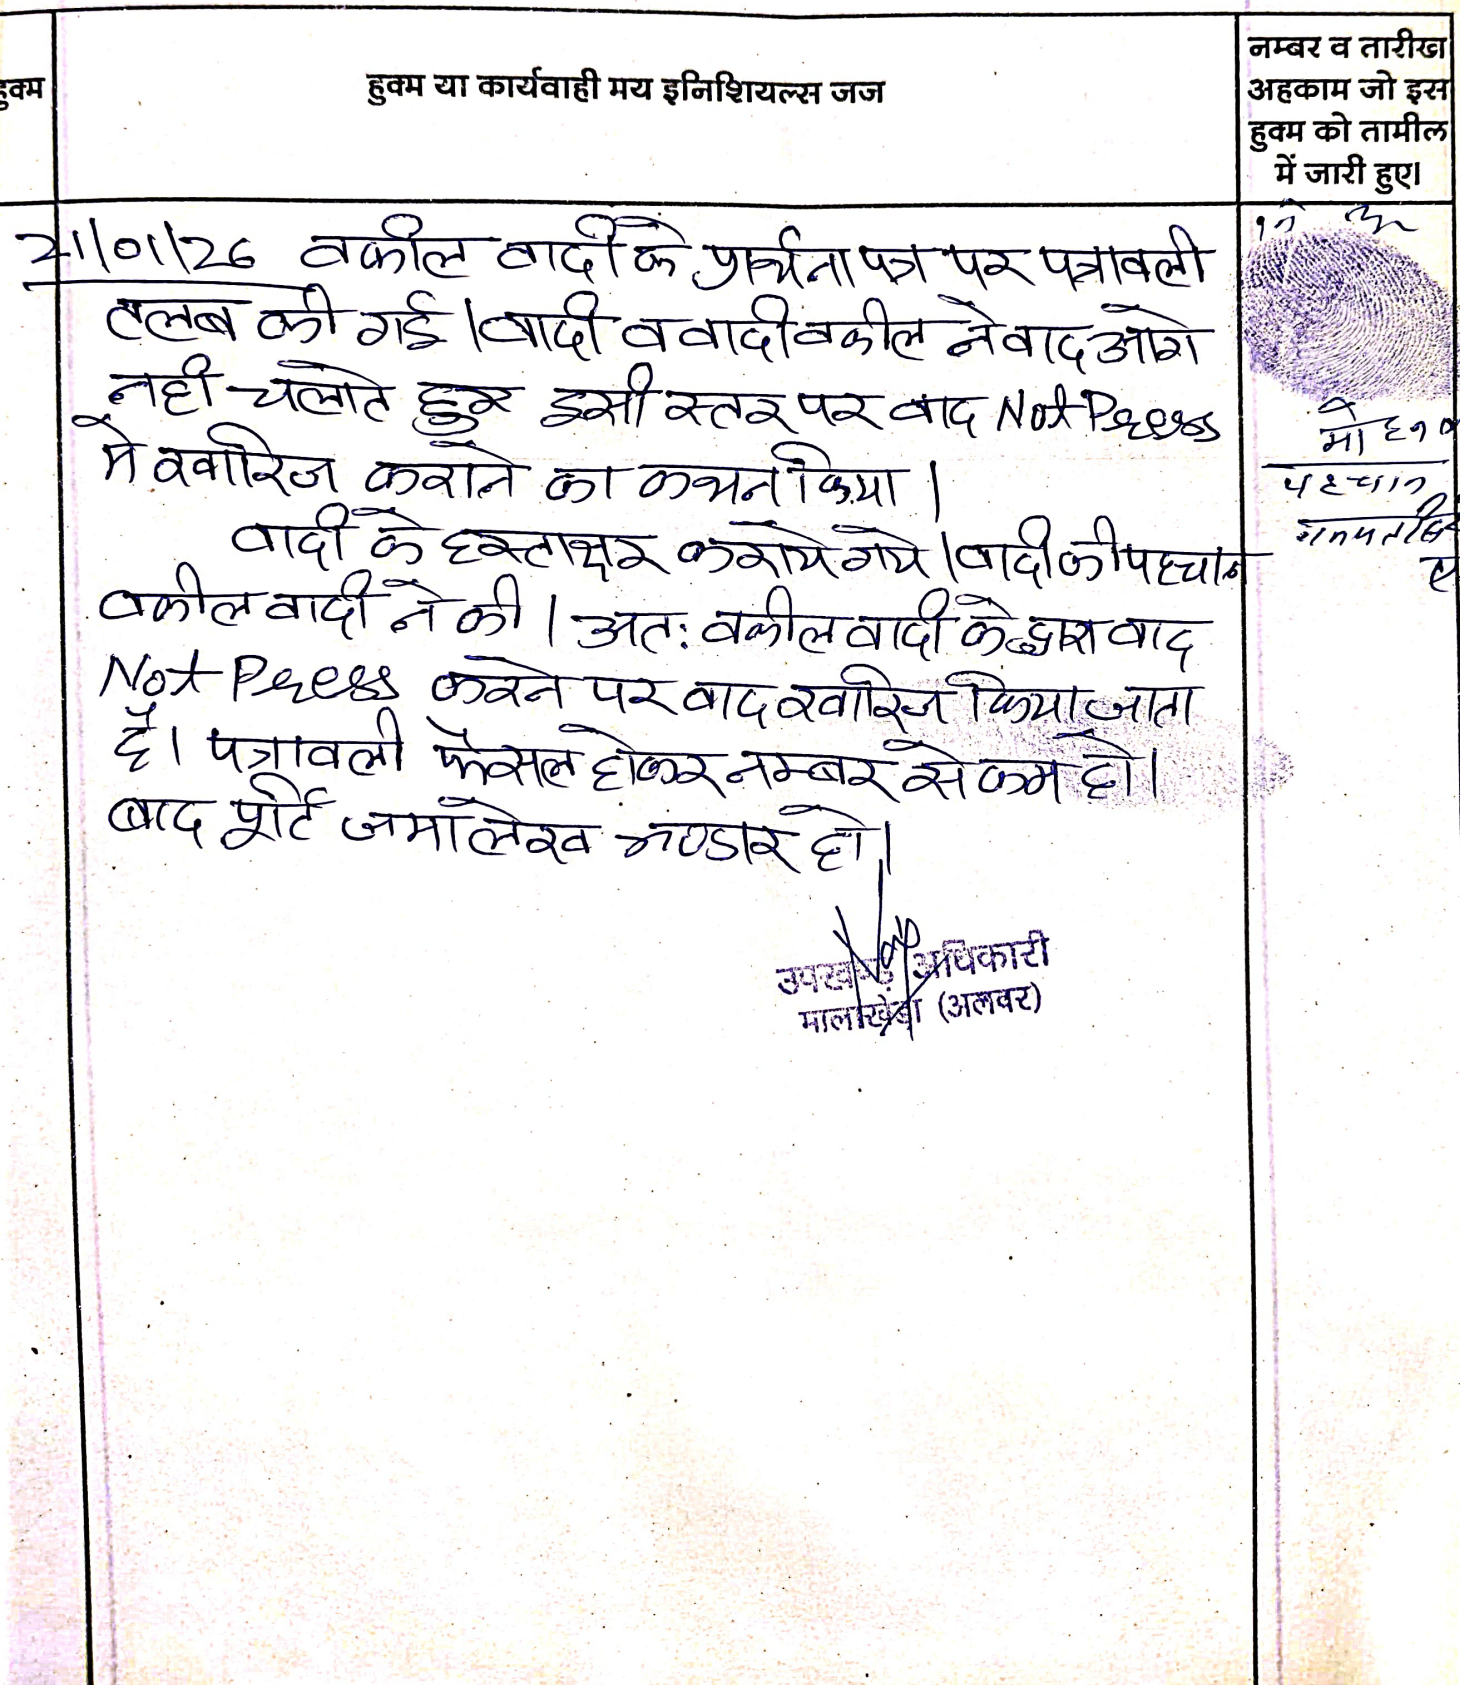 हुक्म
हुक्म या कार्यवाही मय इनिशियल्स जज
नम्बर व तारीख
अहकाम जो इस
हुक्म को तामील
में जारी हुए।
21/01/26 वकील वादी के प्रार्थना पत्र पर पत्रावली
तलब की गई। वादी व वादी वकील ने वाद आगे
नही चलाते हुए इसी स्तर पर वाद Not Press
मे खारिज कराने का कथन किया।
वादी के हस्ताक्षर कराये गये। वादी की पहचान
वकील वादी ने की। अतः वकील वादी के द्वारा वाद
Not Press करने पर वाद खारिज किया जाता
है। पत्रावली फैसल होकर नम्बर से कम हो।
बाद पूर्ति जमा लेख भण्डार हो।
पहचान
उपखण्ड अधिकारी
मालाखेडा (अलवर)